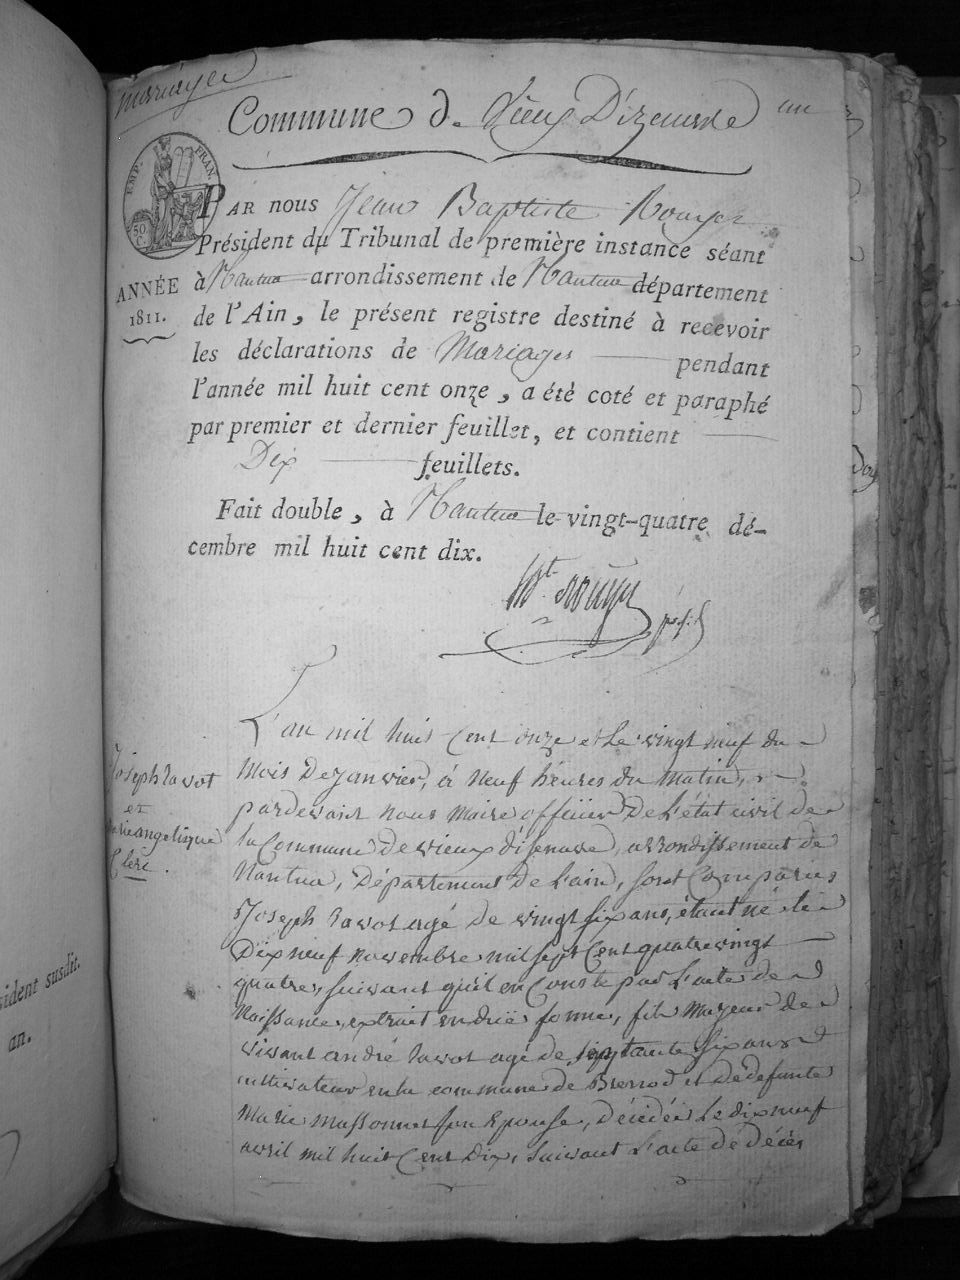 mariages
Commune de Vieux D'izenave un
EMP. FRAN.
50. C.
PAR nous Jean Baptiste Rouyer
Président du Tribunal de première instance séant
à Nantua arrondissement de Nantua département
ANNÉE
1811.
de l'Ain, le présent registre destiné à recevoir
les déclarations de Mariages pendant
l'année mil huit cent onze, a été coté et paraphé
par premier et dernier feuillet, et contient
Dix feuillets.
Fait double, à Nantua le vingt-quatre dé-
cembre mil huit cent dix.
Bt. Rouyer
L'an mil huit Cent onze et le vingt neuf du
Mois De janvier, à Neuf heures du matin,
pardevant nous Maire officier De L'état civil de
la Commune De vieux d'isenave, arrondissement de
Nantua, Département De L'ain, sont Comparus
Joseph ravot agé de vingt six ans, étant né le
Dix neuf novembre mil sept Cent quatre vingt
quatre, suivant qu'il en Conste par L'acte de
Naissance, extrait en düe forme, fils Majeur de
vivant andré ravot agé de septante six ans
cultivateur en la commune de Brenod et de défunte
Marie Massonnet son Epouse, Décédée Le dix neuf
avril mil huit Cent Dix, suivant L'acte de Décès
Joseph ravot
et
marie angelique
Clerc.
sident susdit.
an.